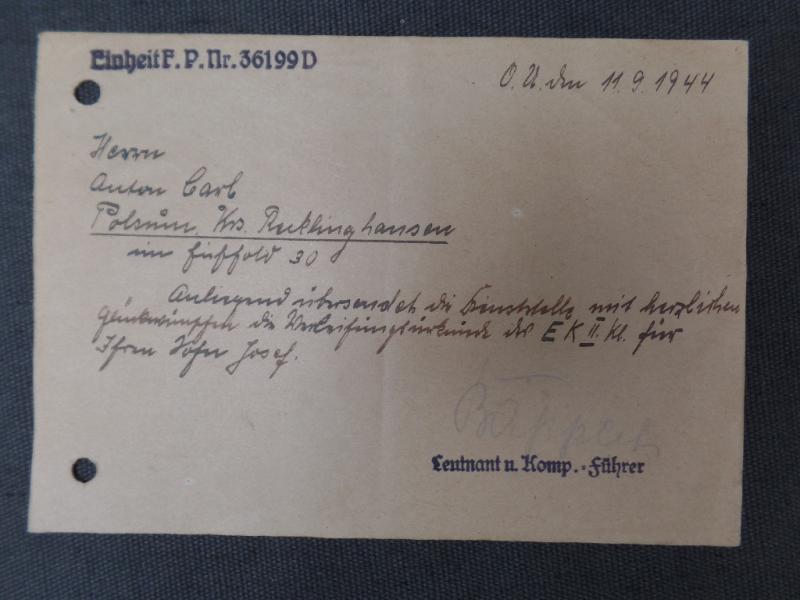 Einheit F. P. Nr. 36199 D
O. U. den 11. 9. 1944
Herrn
Anton Carl
Polsum, Krs. Recklinghausen
im 30
Anliegend übersendet die Dienststelle mit herzlichen
Glückwünschen die Verleihungsurkunde des E K II. Kl. für
Ihren Sohn Josef.
Leutnant u. Komp.-Führer